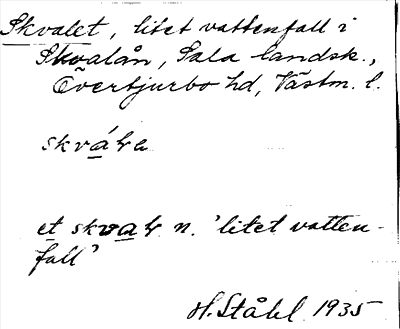 Skvalet, litet vattenfall i
Skvalån, Sala landsk.,
Övertjurbo hd, Västm. l.
skvála
et skval n. 'litet vatten-
fall'
H. Ståhl 1935